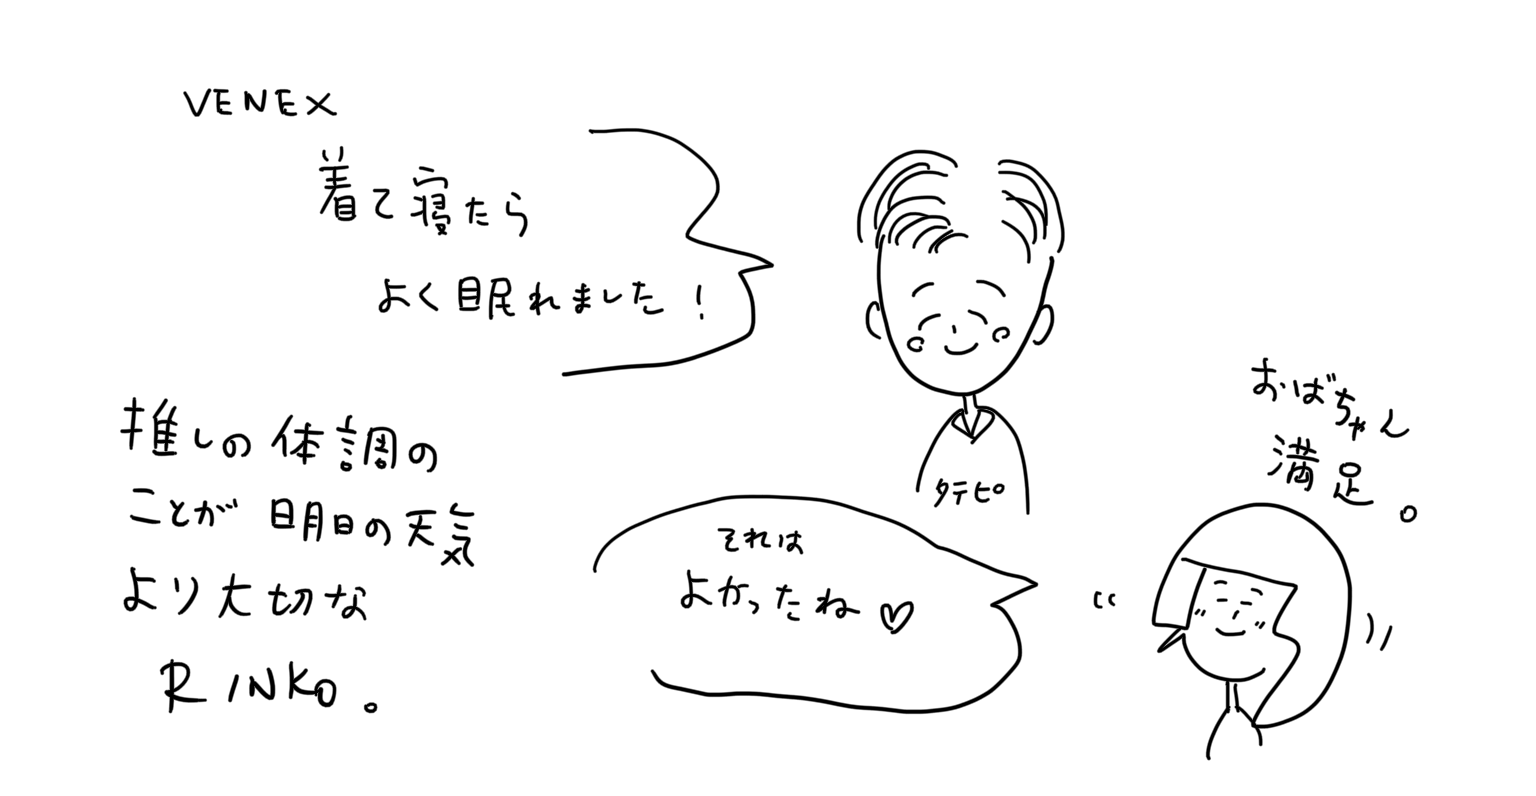 VENEX
着て寝たら
よく眠れました!
タテピ
おばちゃん
満足。
それは
よかったね♡
推しの体調の
ことが明日の天気
より大切な
RINKO。